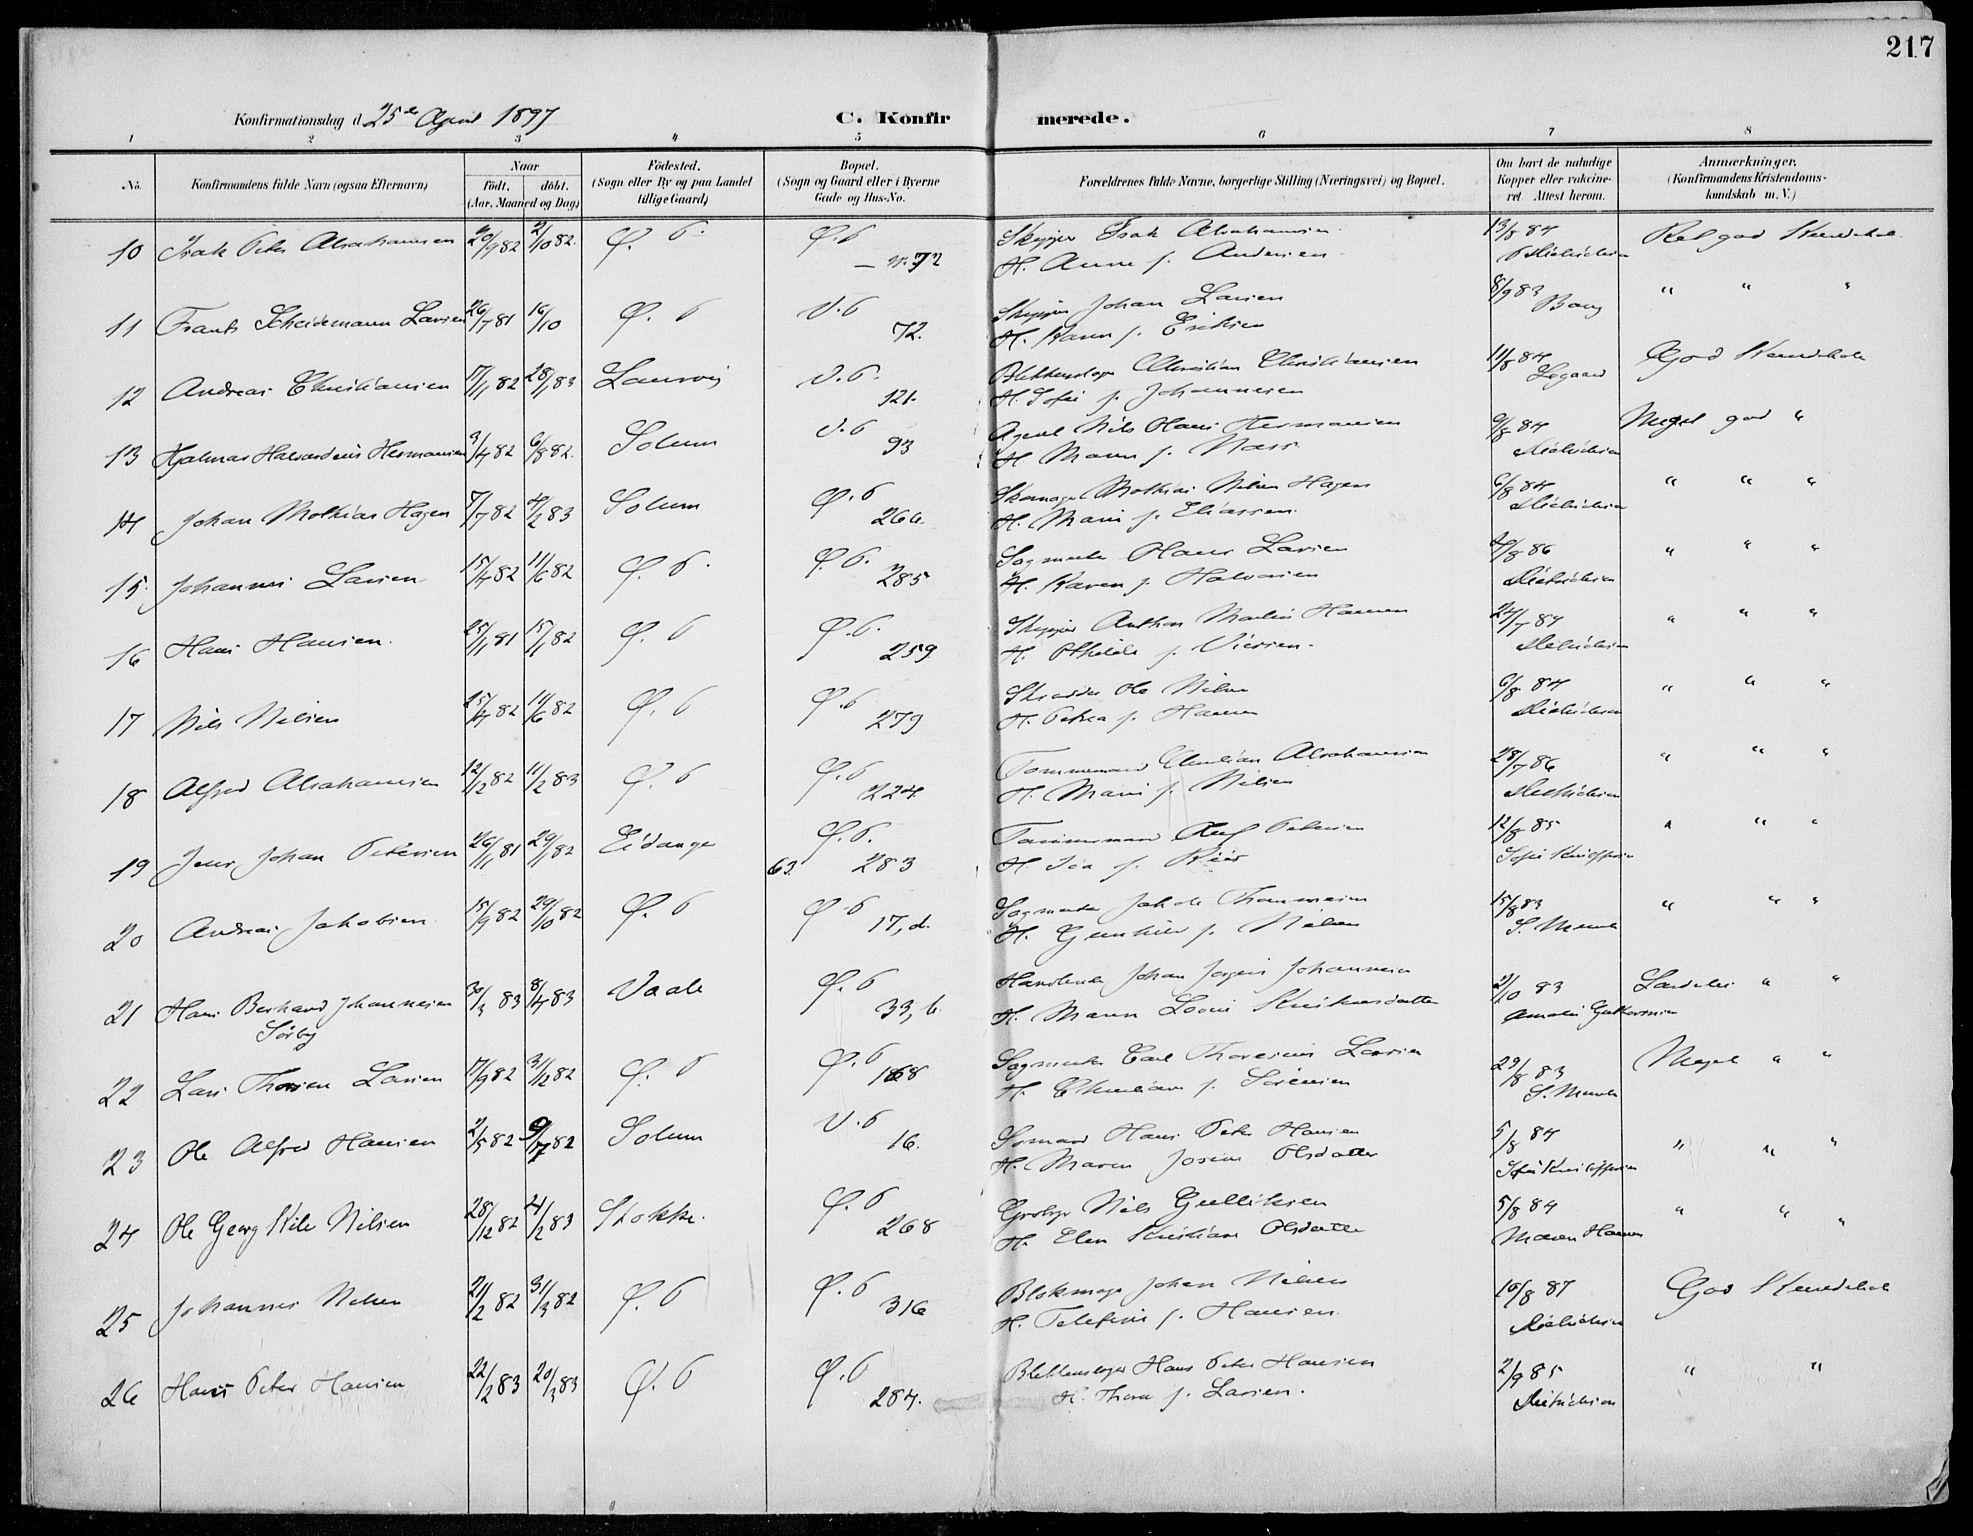 217
Konfirmationsdag d. 25de April 1897 C. Konfirmerede.
1 2 3 4 5 6 7 8
No. Konfirmandens fulde Navn (ogsaa Efternavn) Naar födt. döbt. (Aar, Maaned og Dag) Födested. (Sogn eller By og paa Landet tillige Gaard) Bopæl. (Sogn og Gaard eller i Byerne Gade og Hus-No. Forældrenes fulde Navne, borgerlige Stilling (Næringsvei) og Bopæl. Om havt de naturlige Kopper eller vakcineret. Attest herom. Anmærkninger. (Konfirmandens Kristendomskundskab m. V.)
10 Isak Peter Abrahamsen 20/9 82 2/10 82. Ø. P. Ø. P Skipper Isak Abrahamsen 13/8 84 Ret god Kundskab
72 H. Anne f. Andersen Didrichsen
11 Frants Scheidemann Larsen 26/7 81 16/10 Ø. P V. P Skipper Johan Larsen 8/9 83 " " "
72. H. Karen f. Eriksen Bang
12 Andreas Christiansen 17/1 82 28/1 83 Laurvig V. P. Blikkenslager Christian Christiansen 11/8 84 God Kundskab
121. H. Sofie f. Johannesen
13 Hjalmar Halvardius Hermansen 3/4 82 6/8 82. Solum V. P Agent Nils Hans Hermansen 9/8 84 Meget god "
93 H. Maren f. Didrichsen
14 Johan Mathias Hagen 7/7 82 4/2 83 Solum Ø. P Skomager Mathias Nilsen Hagen 6/8 84 " " "
266. H. Marie f. Eliassen. Didrichsen
15. Johannes Larsen 15/4 82 11/6 82 Ø. P. Ø. P. Sagmester Hans Larsen 4/8 86 " " "
285 H. Karen f. Halvorsen Didrichsen
16 Hans Hansen. 25/1 81 15/1 82 Ø. P Ø. P. Skipper Anthon Martin Hansen 24/7 84 " " "
259 H. Othilde f. Didrichsen
17 Nils Nilsen 25/4 82 11/6 82 Ø. P Ø. P Skrædder Ole Nilsen 6/8 84 " " "
279 H. Petrea f. Hansen Didrichsen
18 Alfred Abrahamsen 12/12 82 11/2 83 Ø. P Ø. P Tømmermand Christian Abrahamsen 28/7 86 " " "
224. H. Marie f. Nilsen Didrichsen
19 Jens Johan Petersen 26/1 81 29/1 82 Eidanger Ø. P. Tømmermand Petersen 12/8 85 " " "
63. 283 H. Ida f. Sofie
20 Andreas Jakobsen 15/9 82 29/10 82 Ø. P Ø. P Sagmester Jakob Thommesen 15/8 83 " " "
17, d. H. Gunhild f. Nilsen S. Munk
21 Hans Berhard Johannesen 30/3 83 8/4 83 Vaale Ø. P Handlende Johan Jørgen Johannesen 2/10 83 " "
Sørby 33, b. H. Maren Lovise Kristensdatter Amalie
22 Lars Thorsen Larsen 17/9 82 31/12 82 Ø. P Ø. P Sagmester Carl Thoresius Larsen 29/8 83 Meget " "
168 H. Christiane f. Sørensen S. Munk
23 Ole Alfred Hansen 2/5 82 9/7 82 Solum V. P Sømand Hans Peter Hansen 5/8 84 " " "
16. H. Maren Josine Olsdatter Sofie
24 Ole Georg Kile Nilsen 28/12 82 4/2 83 Stokke. Ø. P Nils Gulliksen 5/8 84 " " "
268 H. Elen Kristiane Olsdatter Maren Hansen
25 Johannes Nilsen 21/2 82 31/3 82 Ø. P Ø. P Blokmager Johan Nilsen 10/8 87 God Kundskab
316 H. f. Hansen. Didrichsen
26 Hans Peter Hansen 22/2 83 20/3 83 Ø. P Ø. P Blikkenslager Hans Peter Hansen 2/9 85 " "
284. H. Thora f. Larsen. Didrichsen